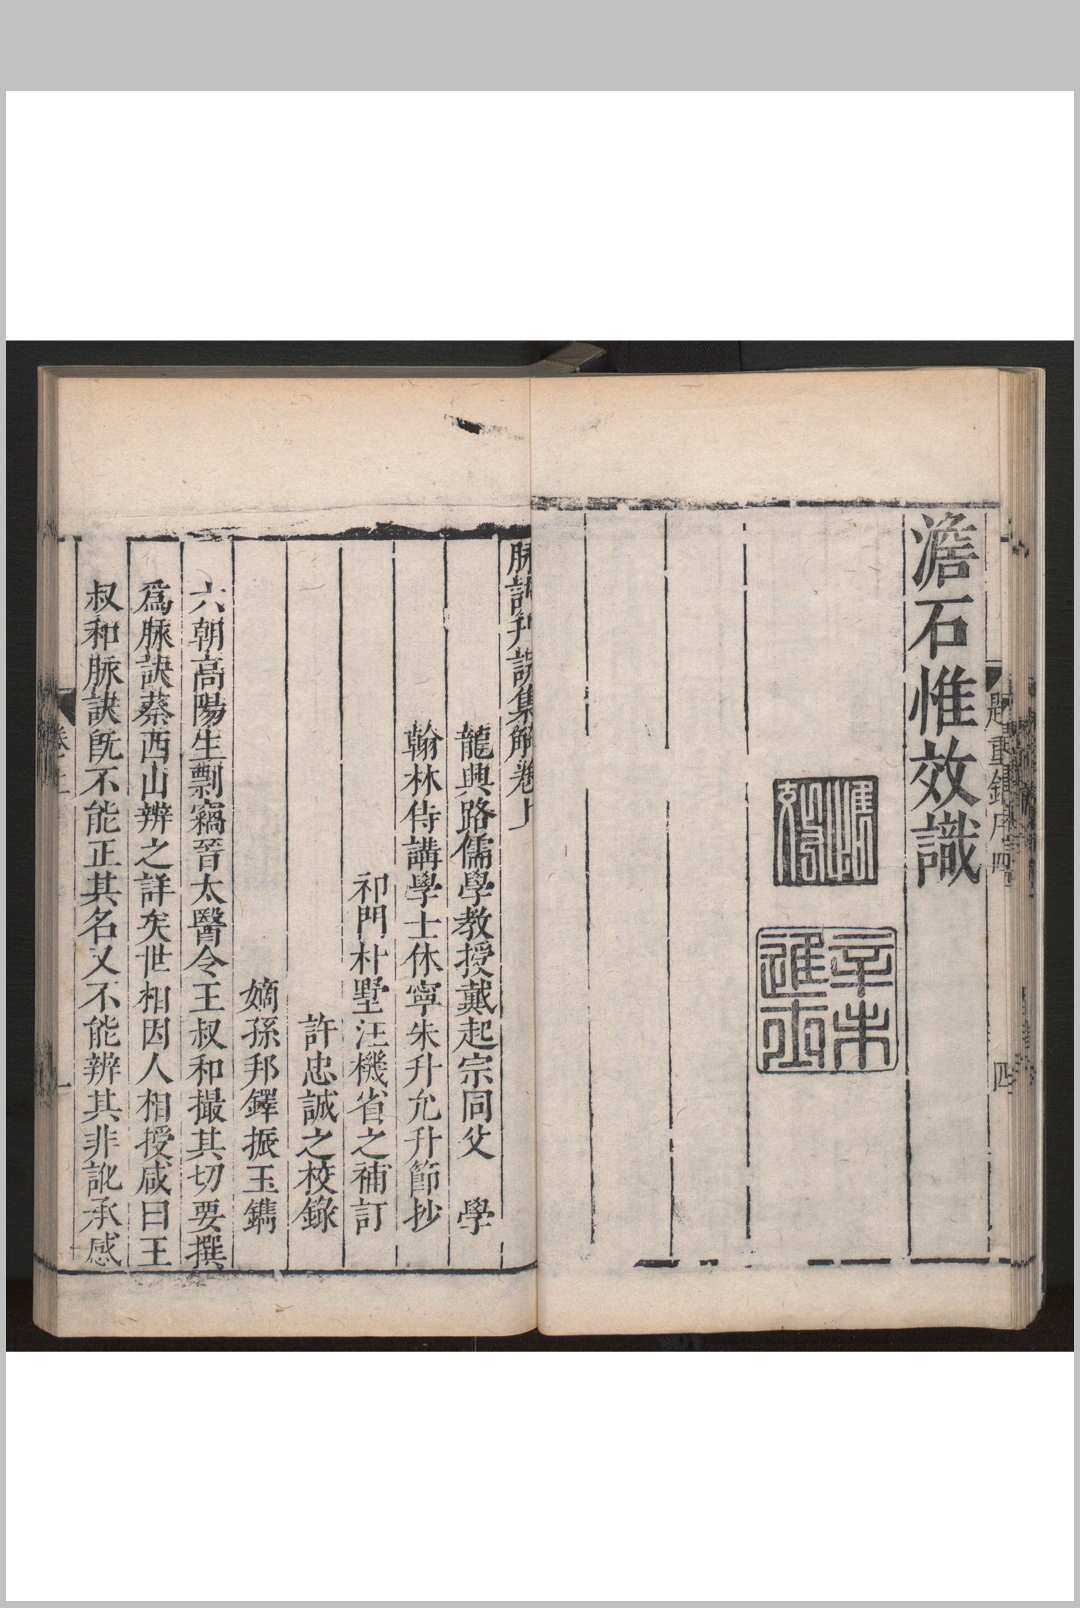 澹石惟效識
辛未進士
題重鐫序
四
脉訣刊誤集解卷上
龍興路儒學教授戴起宗同父 學
翰林侍講學士休寧朱升允升節抄
祁門朴墅汪機省之補訂
許忠誠之校錄
嫡孫邦鐸振玉鐫
六朝高陽生剽竊晉太醫令王叔和撮其切要撰
爲脉訣蔡西山辨之詳矣世相因人相授咸曰王
叔和脉訣旣不能正其名又不能辨其非訛承惑
卷上
一